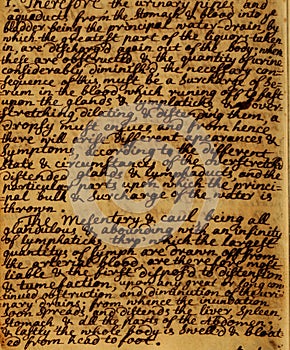 1. Therefore the urinary pipes and
aqueducts from the Stomach & blood into
bladder being the principal water-drain by
which the greatest part of the liquors taken
in are discharg'd again out of the body; when
these are obstructed & the quantity of urine
considerably diminish'd the necessary con-
sequence of this must be a surcharge of s
erum in the blood which runing off & last
upon the glands & lymphaticks & over
stretching dilating, & distending them, a
dropsy must ensues and from hence
there will be different appearances &
symptoms according to the different
state & circumstances of the
distended glands & lymphaducts, and the
particular parts upon which the princi-
pal bulk & surcharge of the water is
thrown.
The Mesentery & caul being all
glandulous & abounding with an Infinity
of lymphaticks thro' which the largest
quantitys of lymph are drawn off from
the arterial blood are therefore most
liable & the first dispos'd to distension
& tumefaction, upon any great & long con
tinued obstruction and diminution of the uri
nary drains; from whence the inundation
soon spreads and distends the liver, spleen,
Stomach & all the parts of the Abdomen;
& lastly the whole body is swell'd & bloat
ed from head to foot.